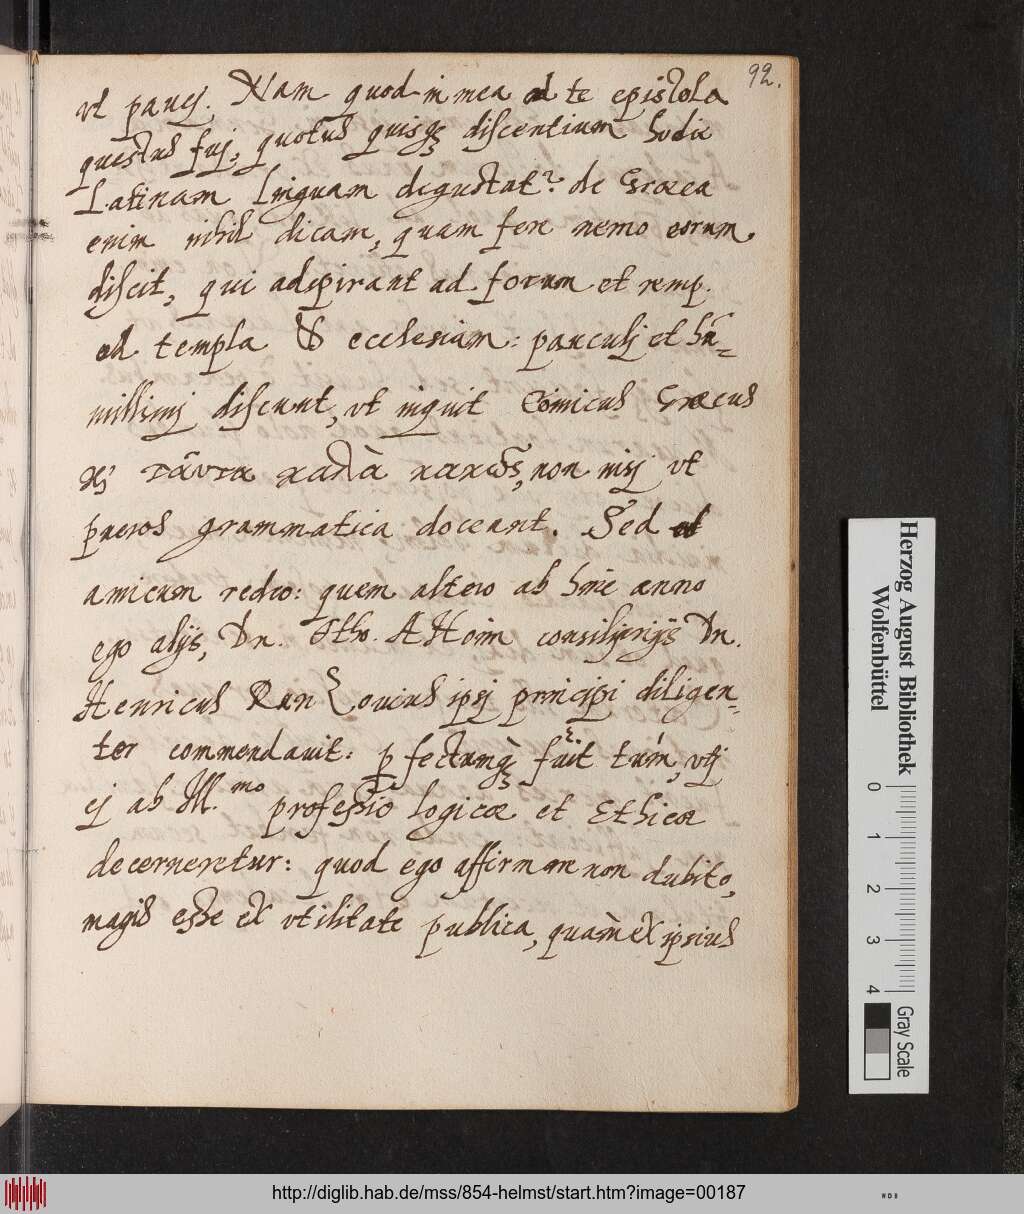 92.
vt paucj. Nam quod in mea ad te epistola
questus fuj, quotus quisq₃ discentium hodie
Latinam linguam degustat? de Græca
enim nihil dicam, quam fere nemo eorum
discit, qui adspirant ad forum et remp.
ad templa & ecclesiam: pauculj et hu-
millimj discunt, vt inquit Comicus Græcus
ταῦτα κακὰ κακῶς, non nisj vt
pueros grammatica doceant. Sed ad
amicum redeo: quem altero ab hinc anno
ego alijs, Dn. Otho. A Hoim consiliarijs Dn.
Henricus Ran ouius ipsj principi diligen-
ter commendauit: fuit tum, vtj
ej ab Ill.mo professio logicæ et Ethicæ
decerneretur: quod ego affirmare non dubito,
magis esse ex vtilitate publica, quàm ex ipsius
Herzog August Bibliothek
Wolfenbüttel
0 1 2 3 4
Gray Scale
http://diglib.hab.de/mss/854-helmst/start.htm?image=00187
WDB